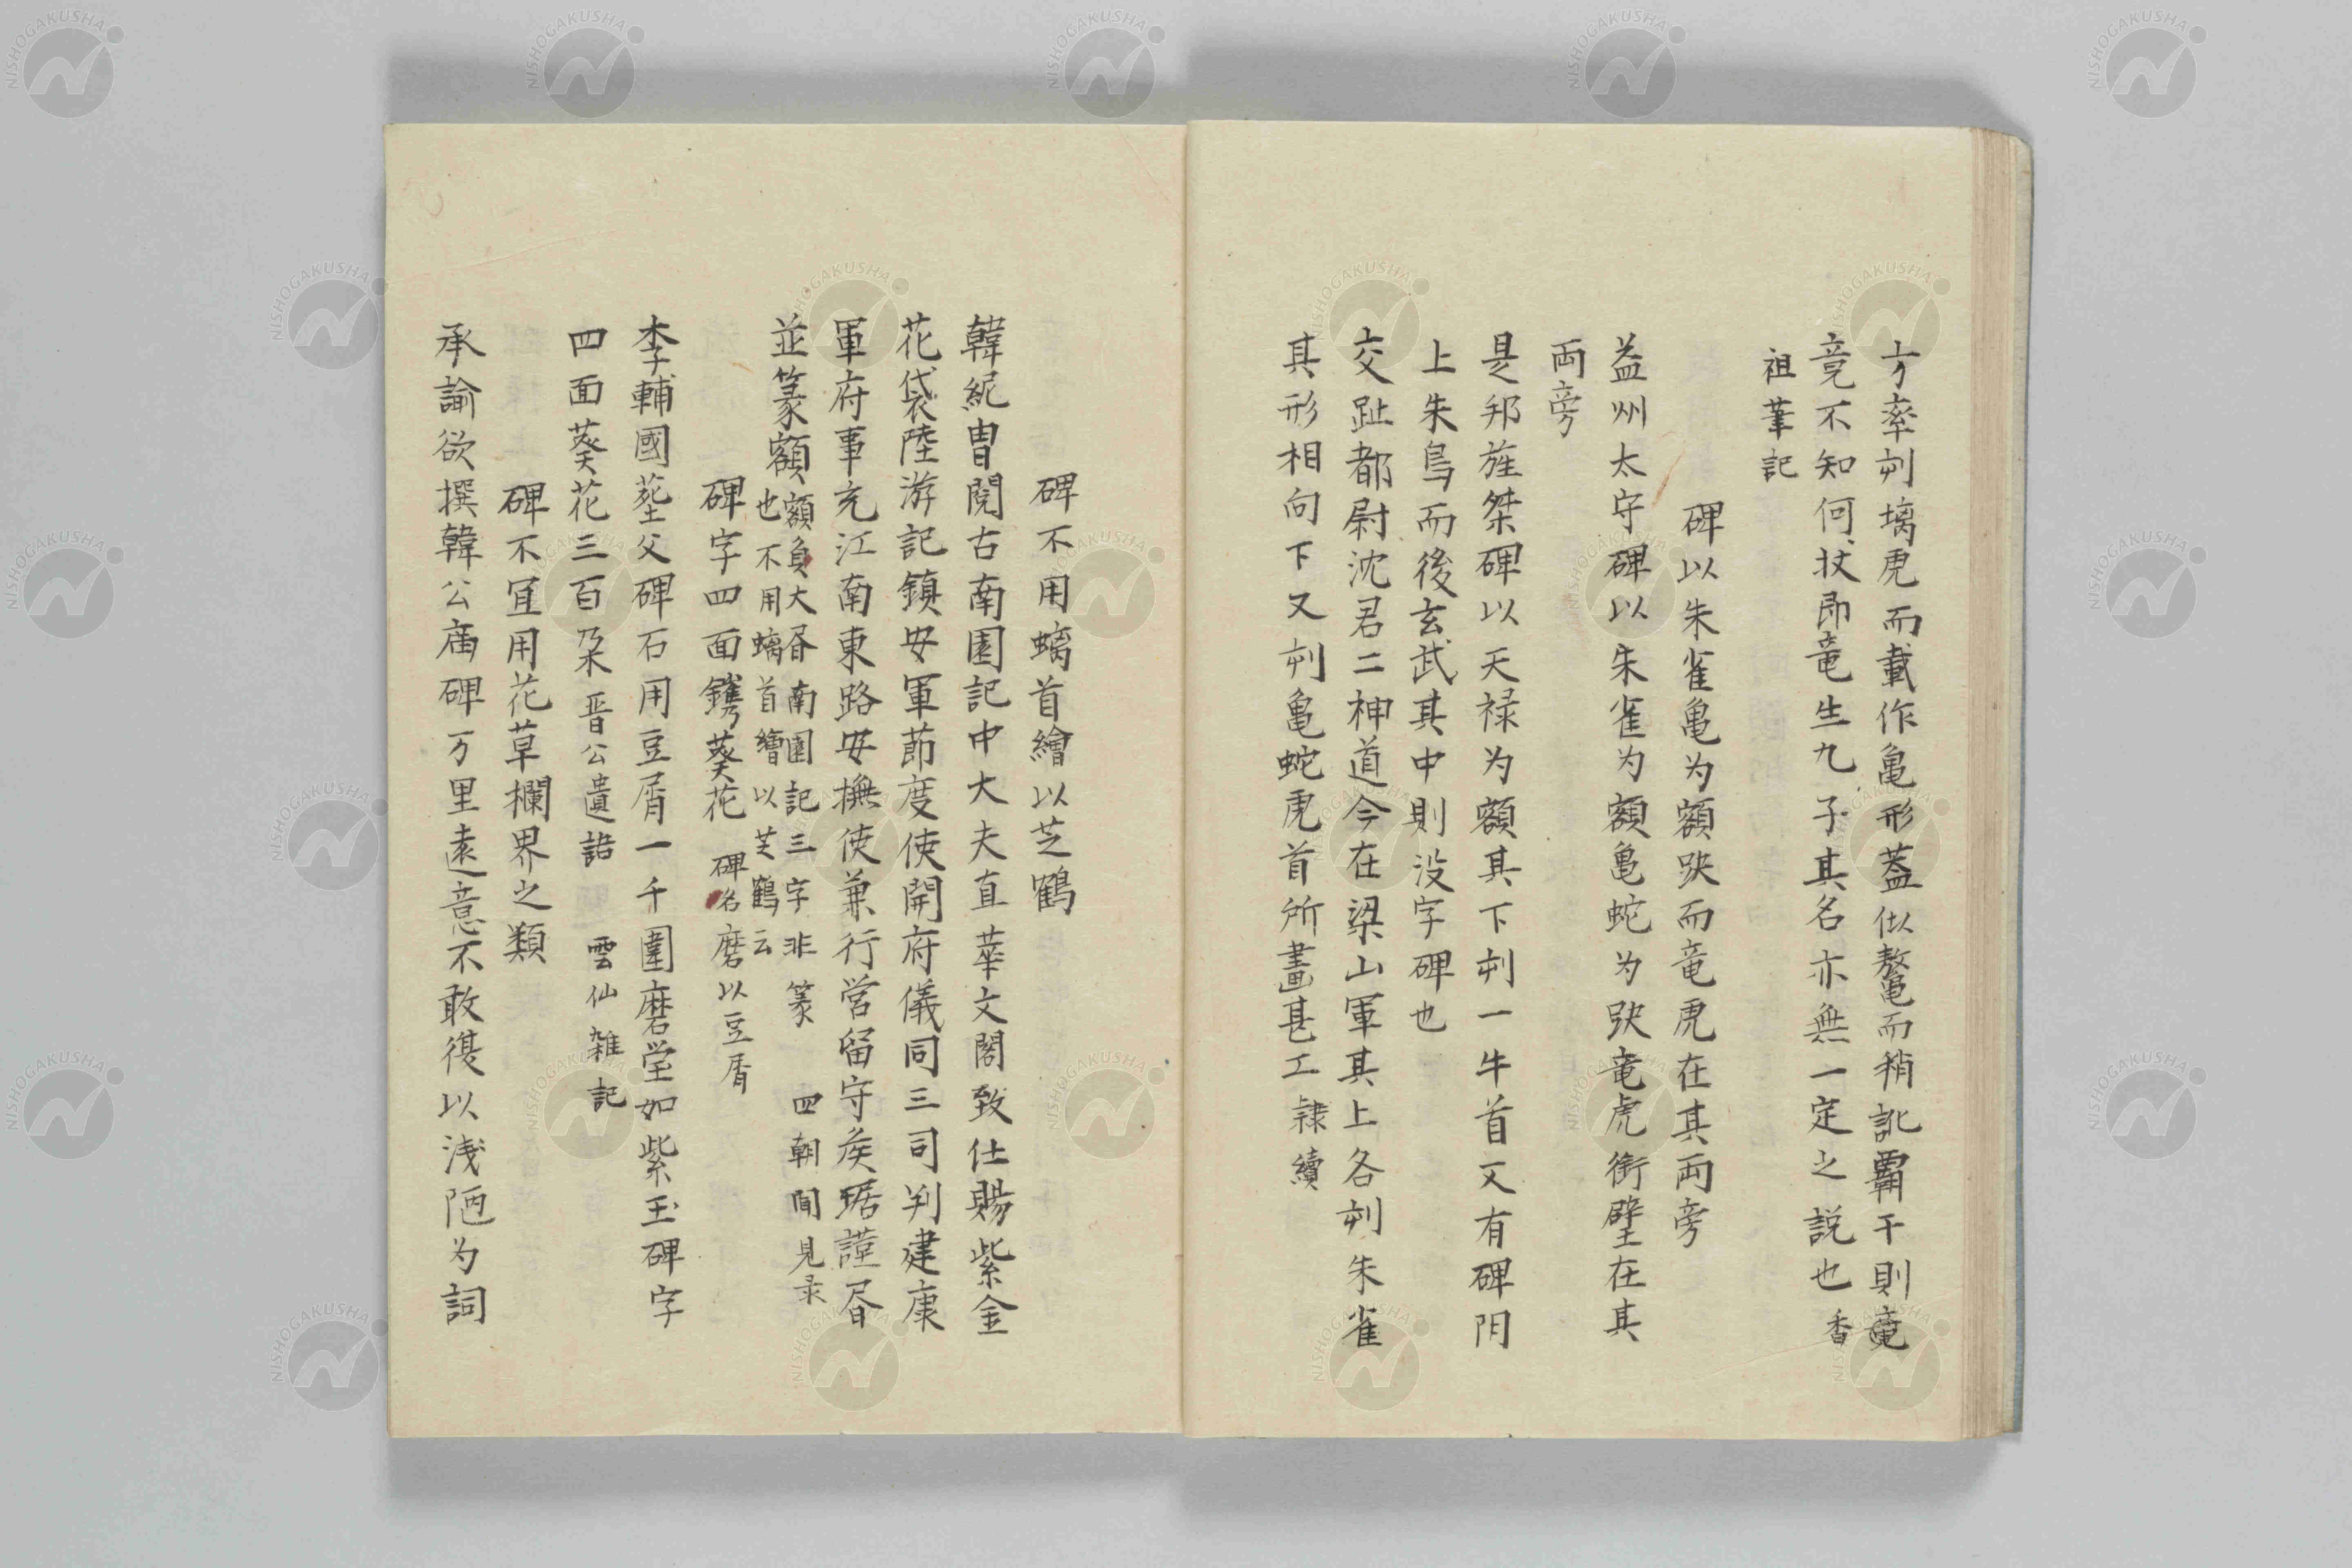 方率刻璃虎而載作亀形蓋似鰲而稍訛覇下則竟
竟不知何状即竜生九子其名亦無一定之説也 香
祖筆記
碑以朱雀亀为額趺而竜虎在其両旁
益州太守碑以朱雀为額亀蛇为趺竜虎銜壁在其
両旁
是邦旌桀碑以天禄为額其下刻一牛首又有碑阴
上朱鳥而後玄武其中則没字碑也
交趾都尉沈君二神道今在梁山軍其上各刻朱雀
其形相向下又刻亀蛇虎首所畫甚工 隷續
碑不用螭首繪以芝鶴
韓紀曹閲古南園記中大夫直華文閣致仕賜紫金
花袋陸游記鎮安軍節度使開府儀同三司判建康
軍府事充江南東路安撫使兼行営留守矦琚謹昏
並篆額 額負大昏南園記三字非篆
也不用螭首繪以芝鶴云 四朝聞見录
碑字四面鐫葵花 碑名磨以豆屑
李輔國塟父碑石用豆屑一千圍磨瑩如紫玉碑字
四面葵花三百朶 晋公遺語 雲仙雑記
碑不宜用花草欄界之類
承諭欲撰韓公庙碑万里遠意不敢復以浅陋为詞